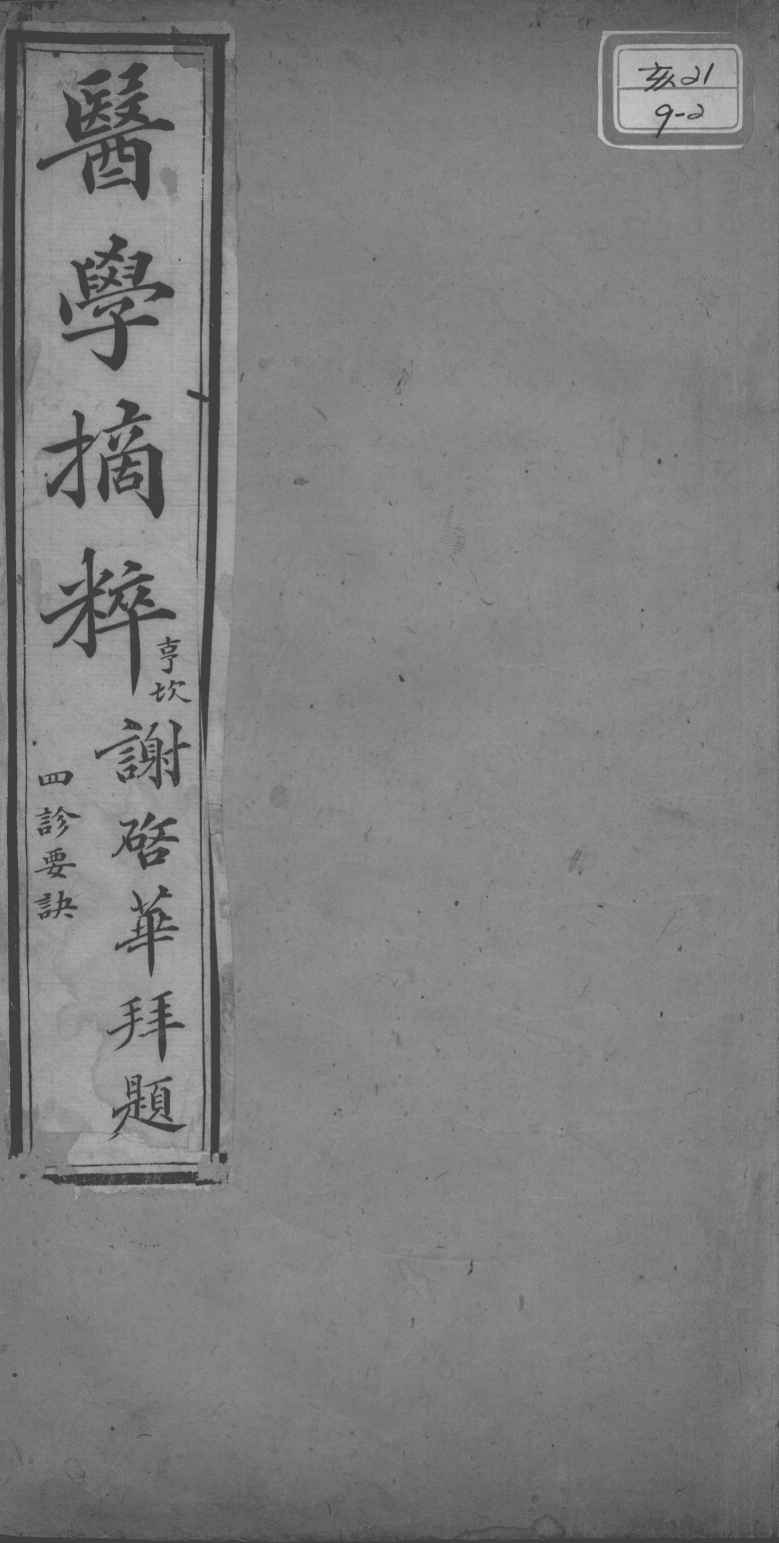 亥21
9-2
醫學摘粹
亨坎
謝啓華拜題
四診要訣